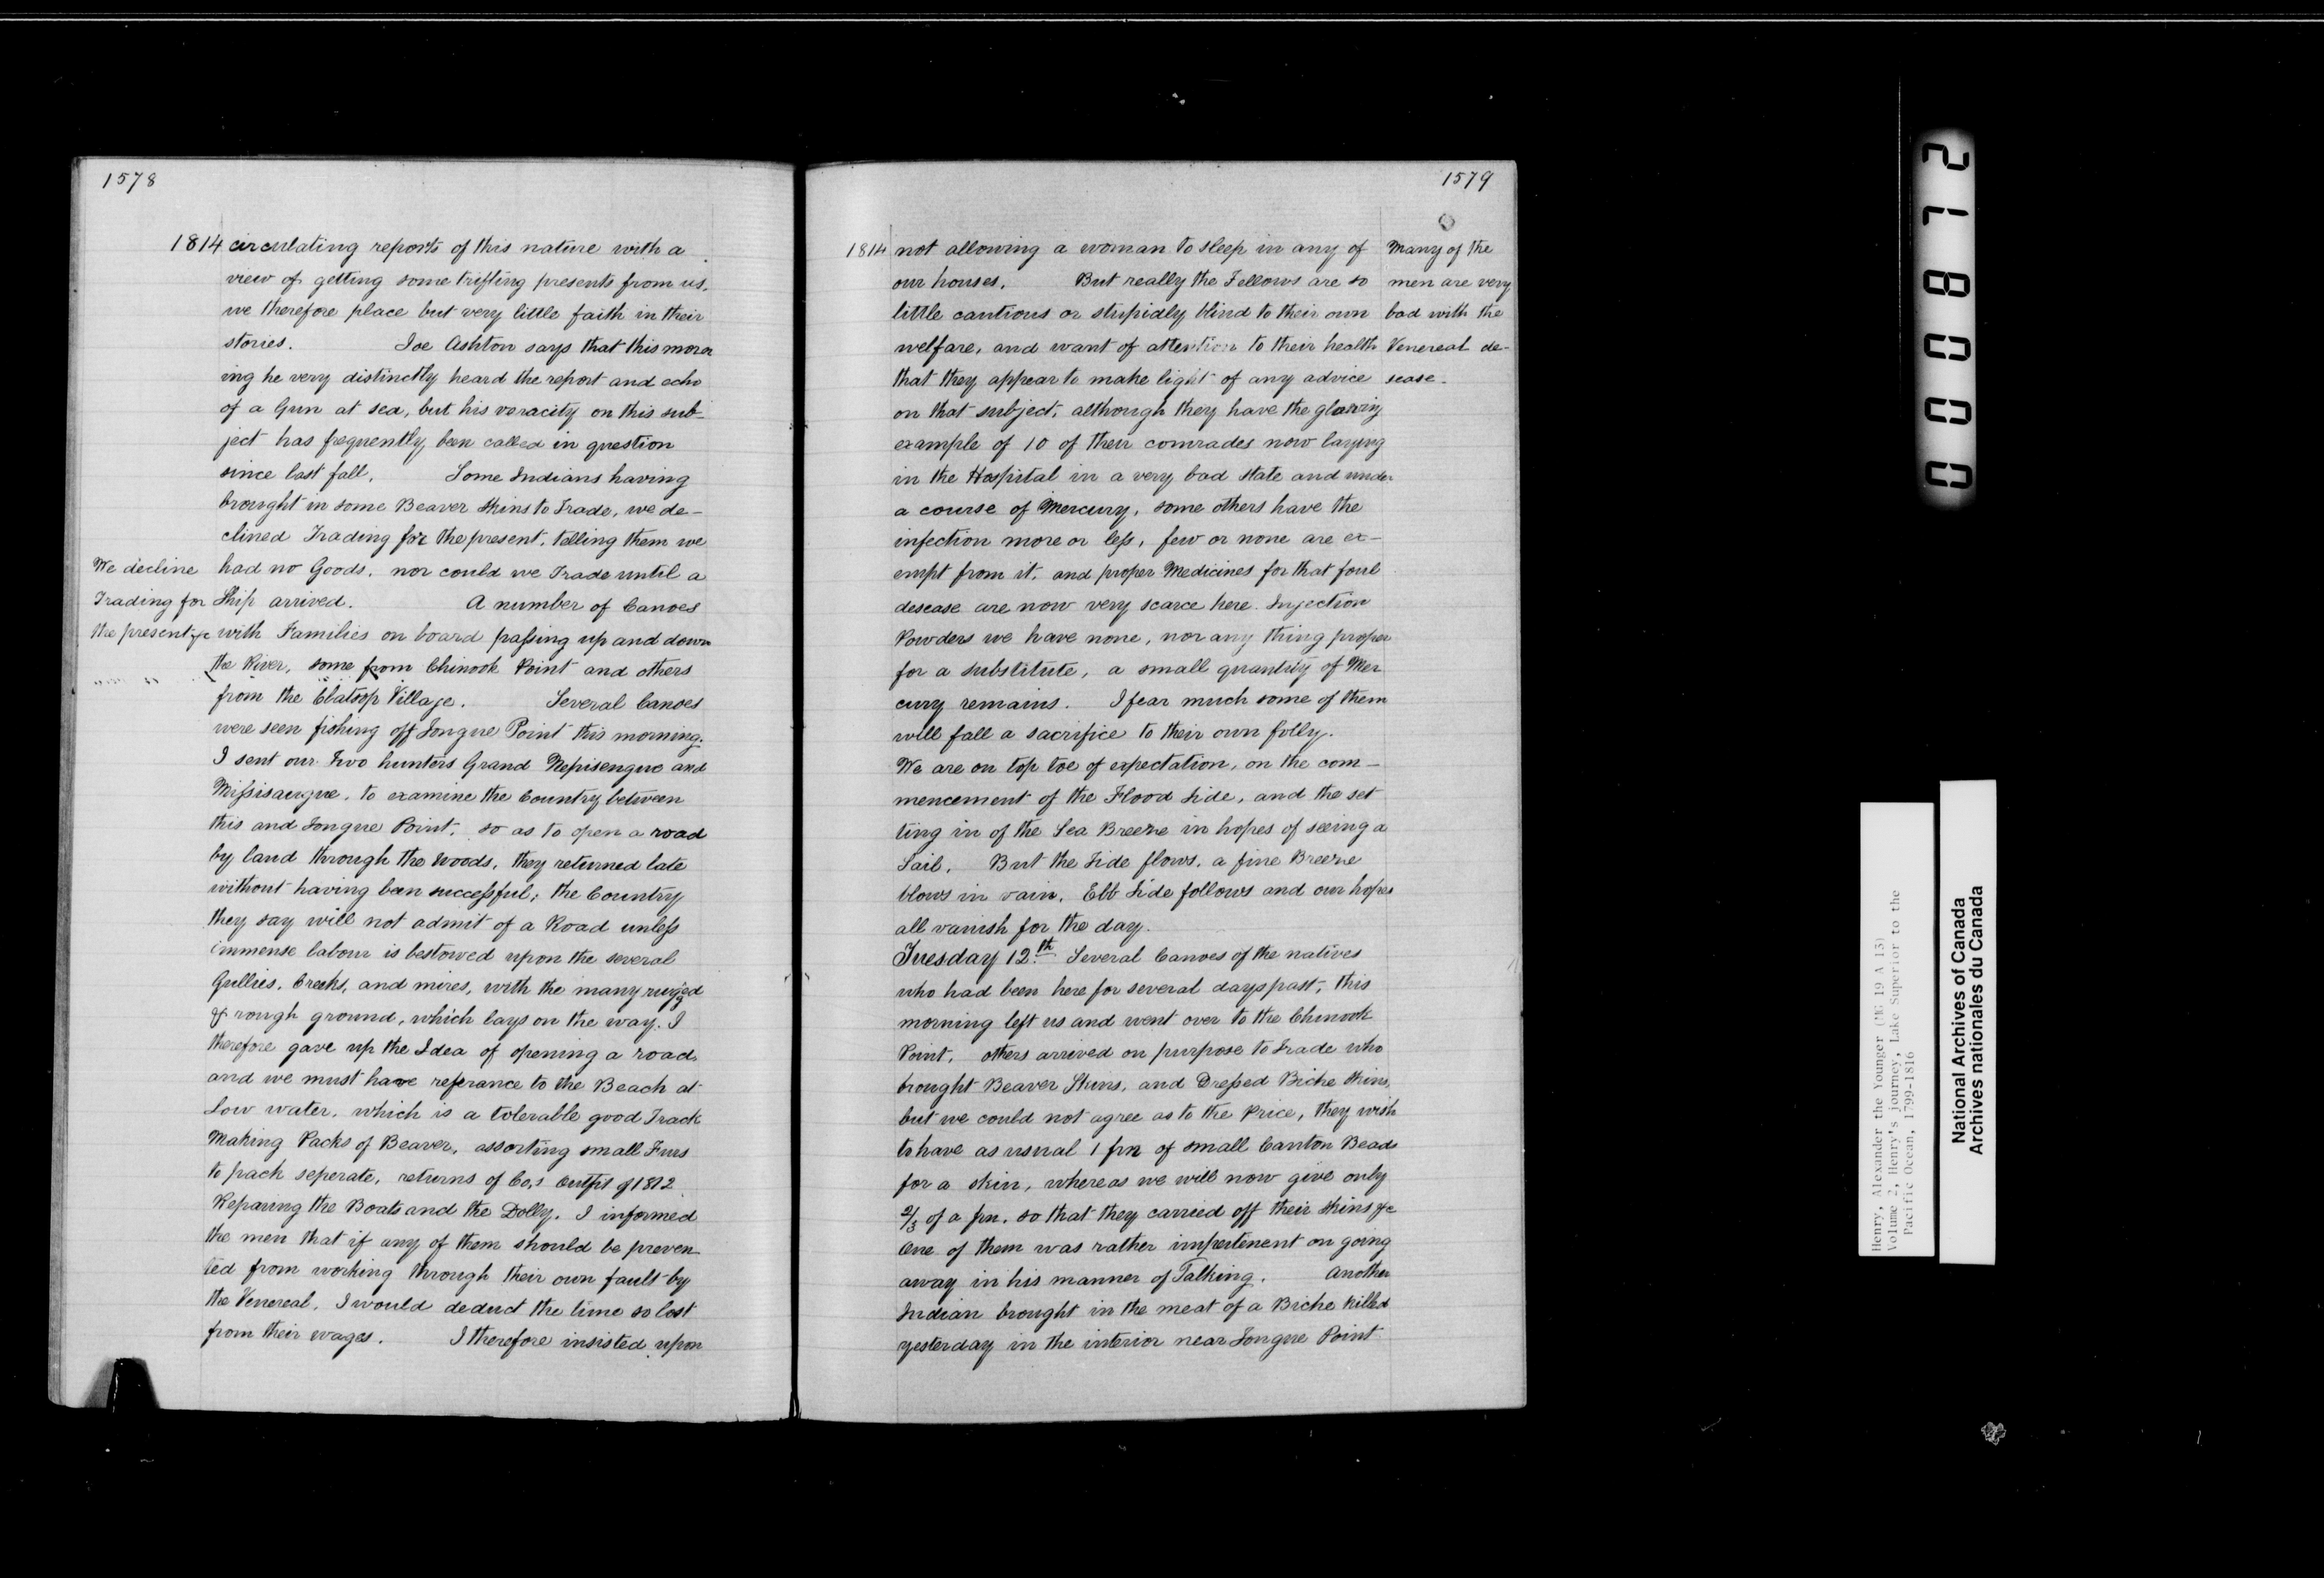 1578
1814 circulating reports of this nature with a
view of getting some trifling presents from us.
we therefore place but very little faith in their
stories. Joe Ashton says that this morn
ing he very distinctly heard the report and echo
of a Gun at sea, but his veracity on this sub-
ject has frequently been called in question
since last fall. Some Indians having
brought in some Beaver Skins to Trade, we de-
clined Trading for the present, telling them we
had no Goods, nor could we Trade until a
Ship arrived. A number of Canoes
with Families on board passing up and down
the River, some from Chinook Point and others
from the Clatsop Village. Several Canoes
were seen fishing off Tongue Point this morning.
I sent our Two hunters Grand Nepisengue and
Missisaugue, to examine the Country between
this and Tongue Point, so as to open a road
by land through the Woods, they returned late
without having been successful; the Country
they say will not admit of a Road unless
immense labour is bestowed upon the several
Gullies, Creeks, and mires, with the many rugged
& rough ground, which lays on the way. I
therefore gave up the Idea of opening a road,
and we must have referance to the Beach at
Low water, which is a tolerable good Track
Making Packs of Beaver, assorting small Furs
to pack seperate, returns of Co,s Outfit of 1812.
Reparing the Boats and the Dolly. I informed
the men that if any of them should be preven-
ted from working through their own fault by
the Venereal, I would deduct the time so lost
from their wages. I therefore insisted upon
We decline
Trading for
the present &c
1579
1814 not allowing a woman to sleep in any of
our houses. But really the Fellows are so
little cautious or stupidly blind to their own
welfare, and want of attention to their health
that they appear to make light of any advice
on that subject, although they have the glaring
example of 10 of their comrades now laying
in the Hospital in a very bad state and under
a course of Mercury, some others have the
infection more or less, few or none are ex-
empt from it, and proper Medicines for that foul
desease are now very scarce here. Injection
Powders we have none, nor any thing proper
for a substitute, a small quantity of Mer
cury remains. I fear much some of them
will fall a sacrifice to their own folly.
We are on top toe of expectation, on the com-
mencement of the Flood Tide, and the set
ting in of the Sea Breeze in hopes of seeing a
Sail. But the Tide flows, a fine Breeze
blows in vain, Ebb Tide follows and our hopes
all vanish for the day.
Tuesday 12th Several Canoes of the natives
who had been here for several days past, this
morning left us and went over to the Chinook
Point, others arrived on purpose to Trade who
brought Beaver Skins, and Dressed Biche Skins,
but we could not agree as to the Price, they wish
to have as usual 1 fm of small Canton Beads
for a skin, whereas we will now give only
2/3 of a fm. so that they carried off their Skins &c
One of them was rather impertenent on going
away in his manner of Talking. Another
Indian brought in the meat of a Biche killed
yesterday in the interior near Tongue Point
Many of the
men are very
bad with the
Venereal de-
sease-
000872
Henry, Alexander the Younger (MG 19 A 13)
Volume 2, Henry's journey, Lake Superior to the
Pacific Ocean, 1799-1816
National Archives of Canada
Archives nationales du Canada